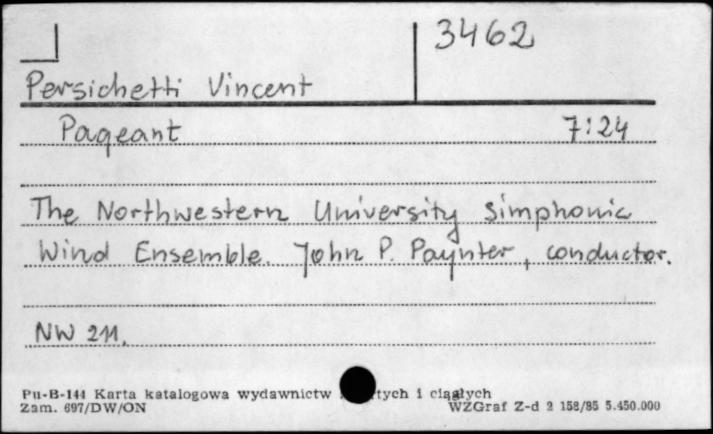 3462
Persichetti Vincent
Pageant 7:24
The Northwestern University Simphonic
Wind Ensemble. John P. Paynter, conductor.
NW 211.
Pu-B-144 Karta katalogowa wydawnictw i ciągłych
Zam. 697/DW/ON WZGraf Z-d 2 158/85 5.450.000